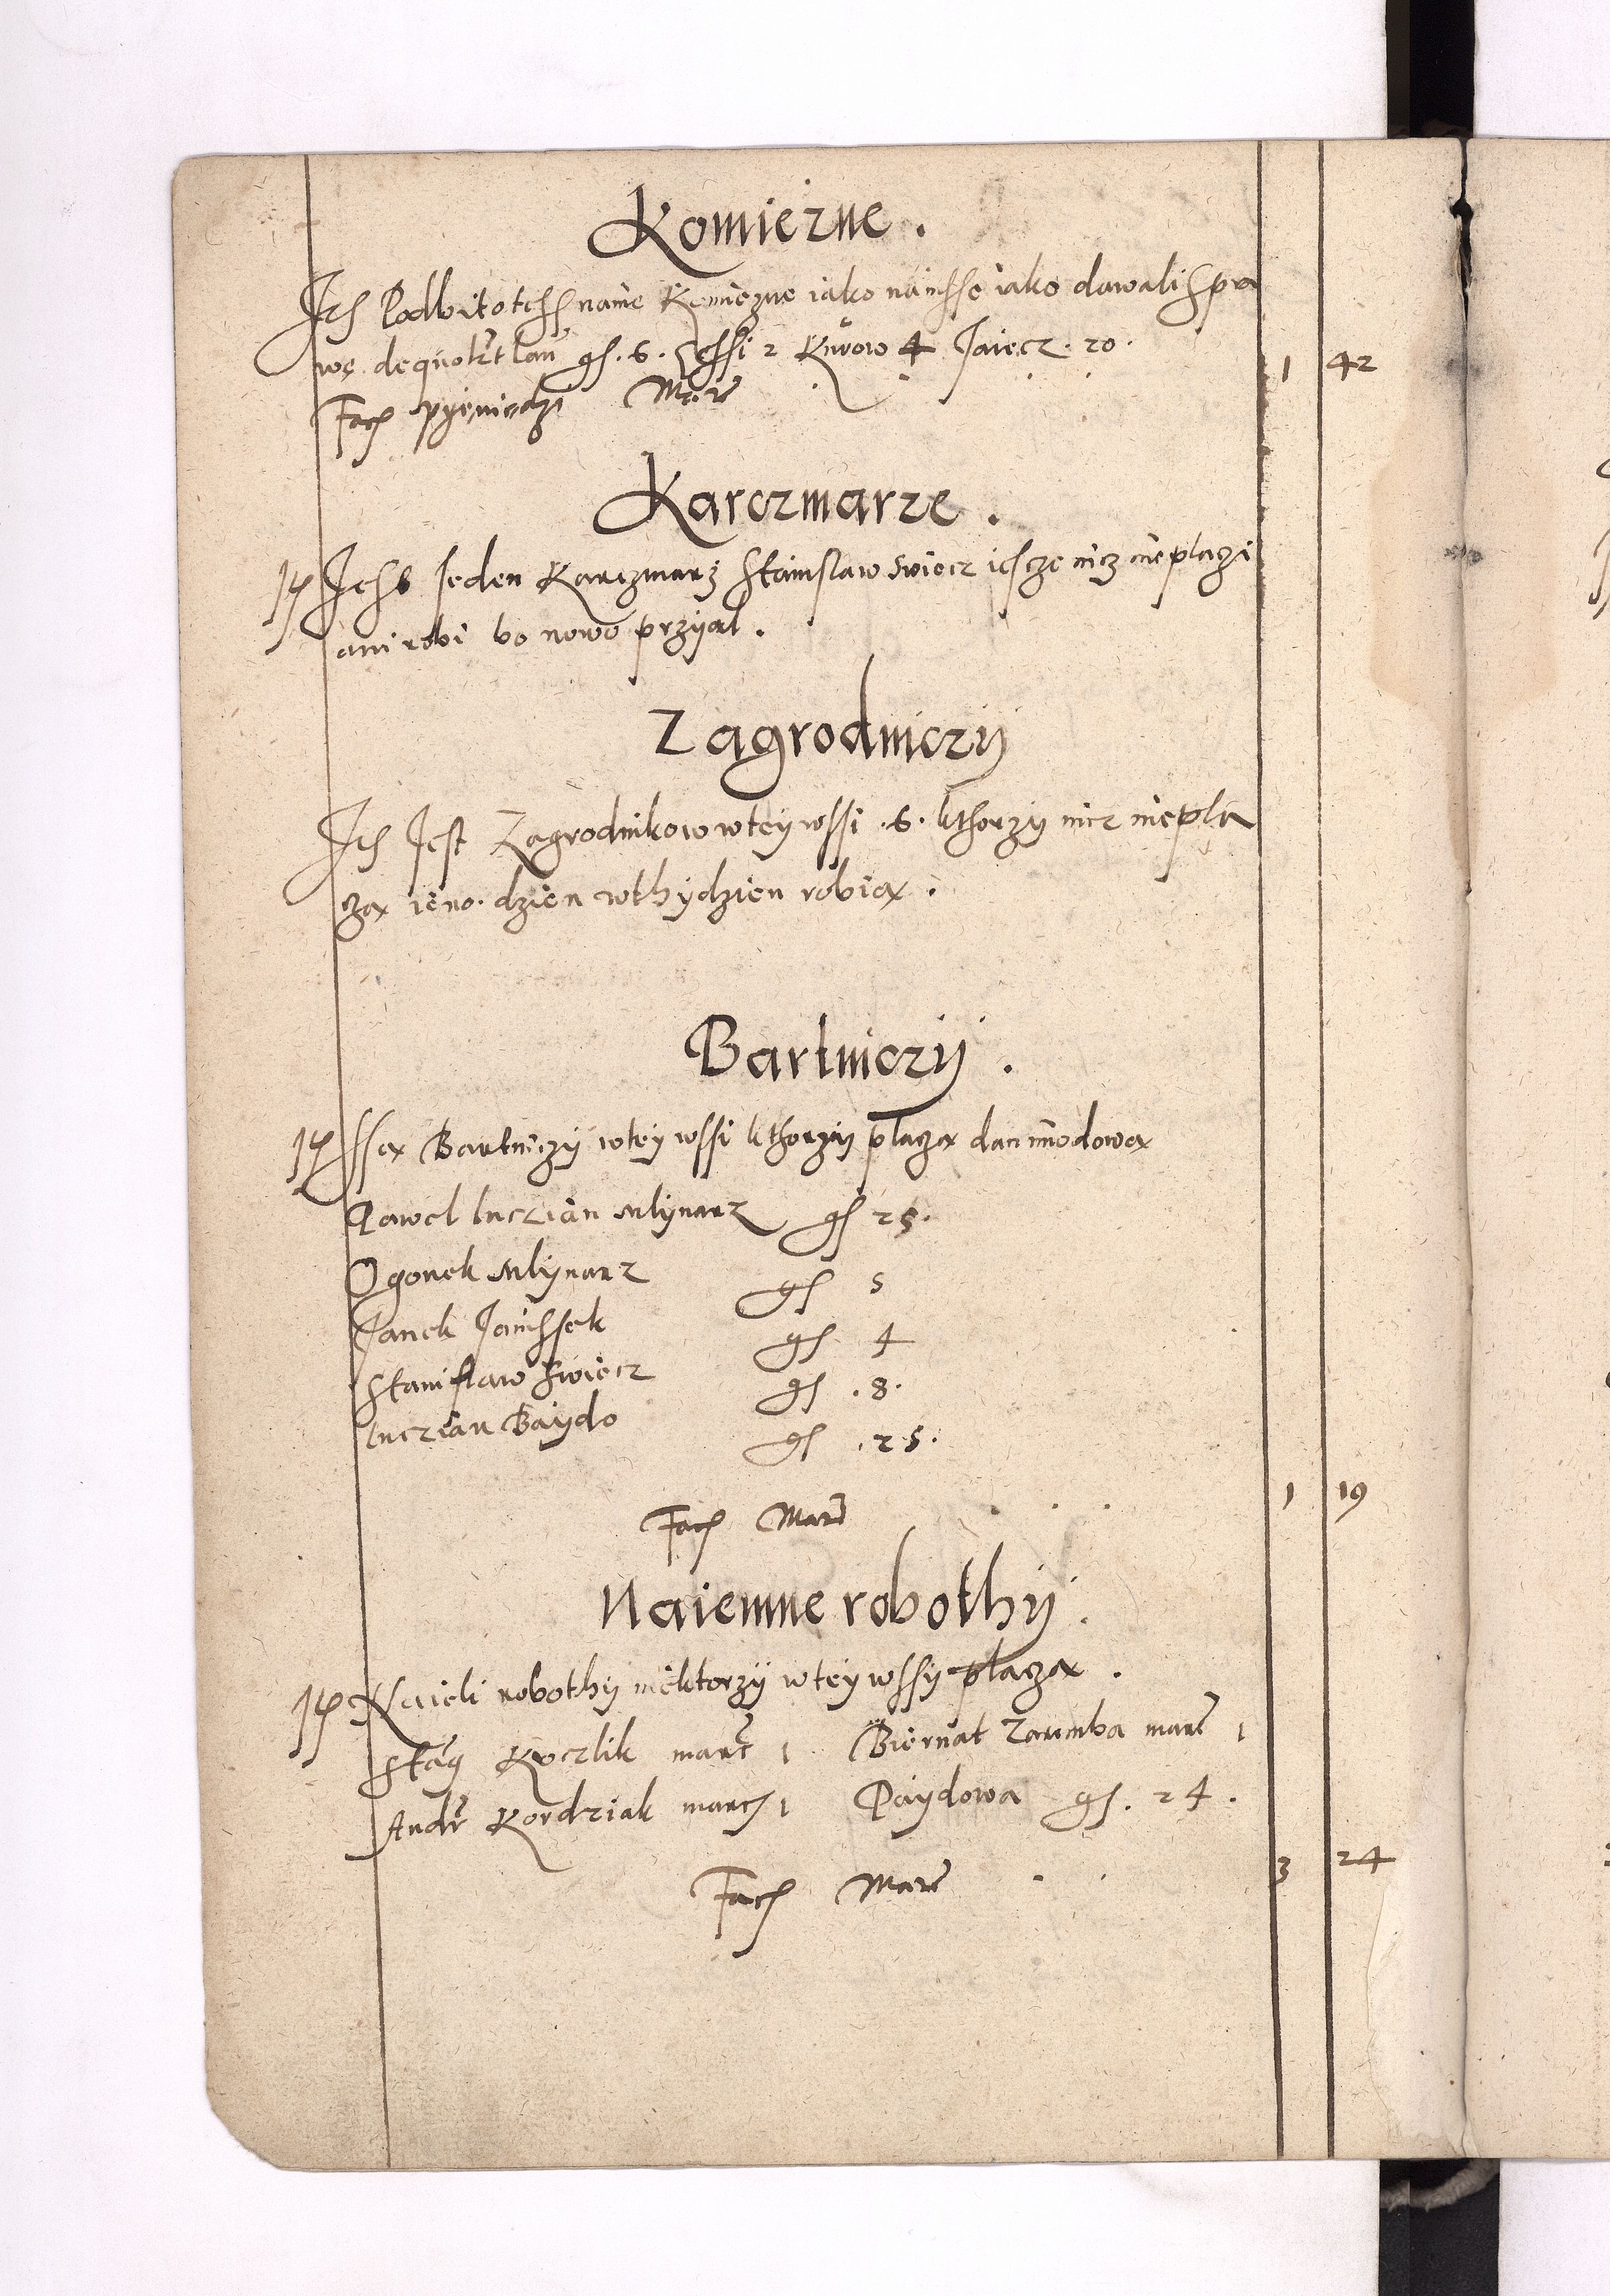 Komierne .
Ich Podbitotchs name Komiezne iako náinsse iako dawali Spra
wę. de quolzt lan gs. 6. Gessi 2 Kurow 4 Jaiecz. 20. 1 42
Fach pyeniedzi Marc
Karczmarze .
It Jest Jeden Karczmarz Stanislaw Swiecz iescze nicz nieplaczi
ani robi bo nowo przyal .
Zagrodniczij
Ich Jest Zagrodnikow wtey wssi .6. kthorzy nicz niepla
cza ieno dzien wthydzien robia .
Bartniczij .
It Ssa Bartniczy wtey wssi kthorzy placza dan miodowa
Pawel luczian Mlynarz gs 25.
Ogonek Mlynarz gs 5
Janek Janissek gs 4
Stanislaw Swiecz gs .8.
luczian Baydo gs .25.
Fach Marc 1 19
Naiemne robothij .
It Naieli robothy niektorzy wtey wssy placza .
Stan Koczlik marc 1 Biernat Zaremba marc 1
Andr Kordziak march 1 Paydowa gs. 24 .
Fach Marc 3 24